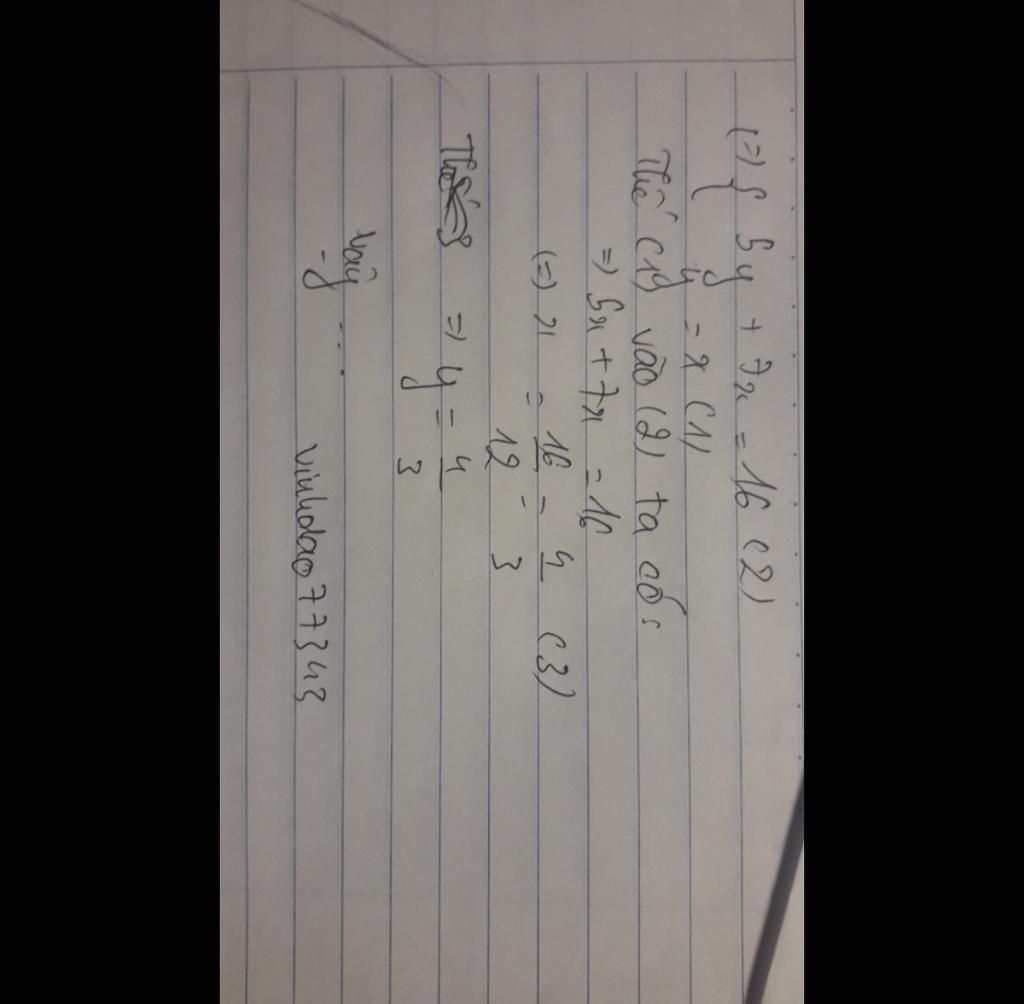 (=) { 5y + 7x = 16 (2)
y = x (1)
Thế (1) vào (2) ta có:
=) 5x + 7x = 16
(=) x = 16/12 = 4/3 (3)
=) y = 4/3
Vậy ...
vinhdao77343